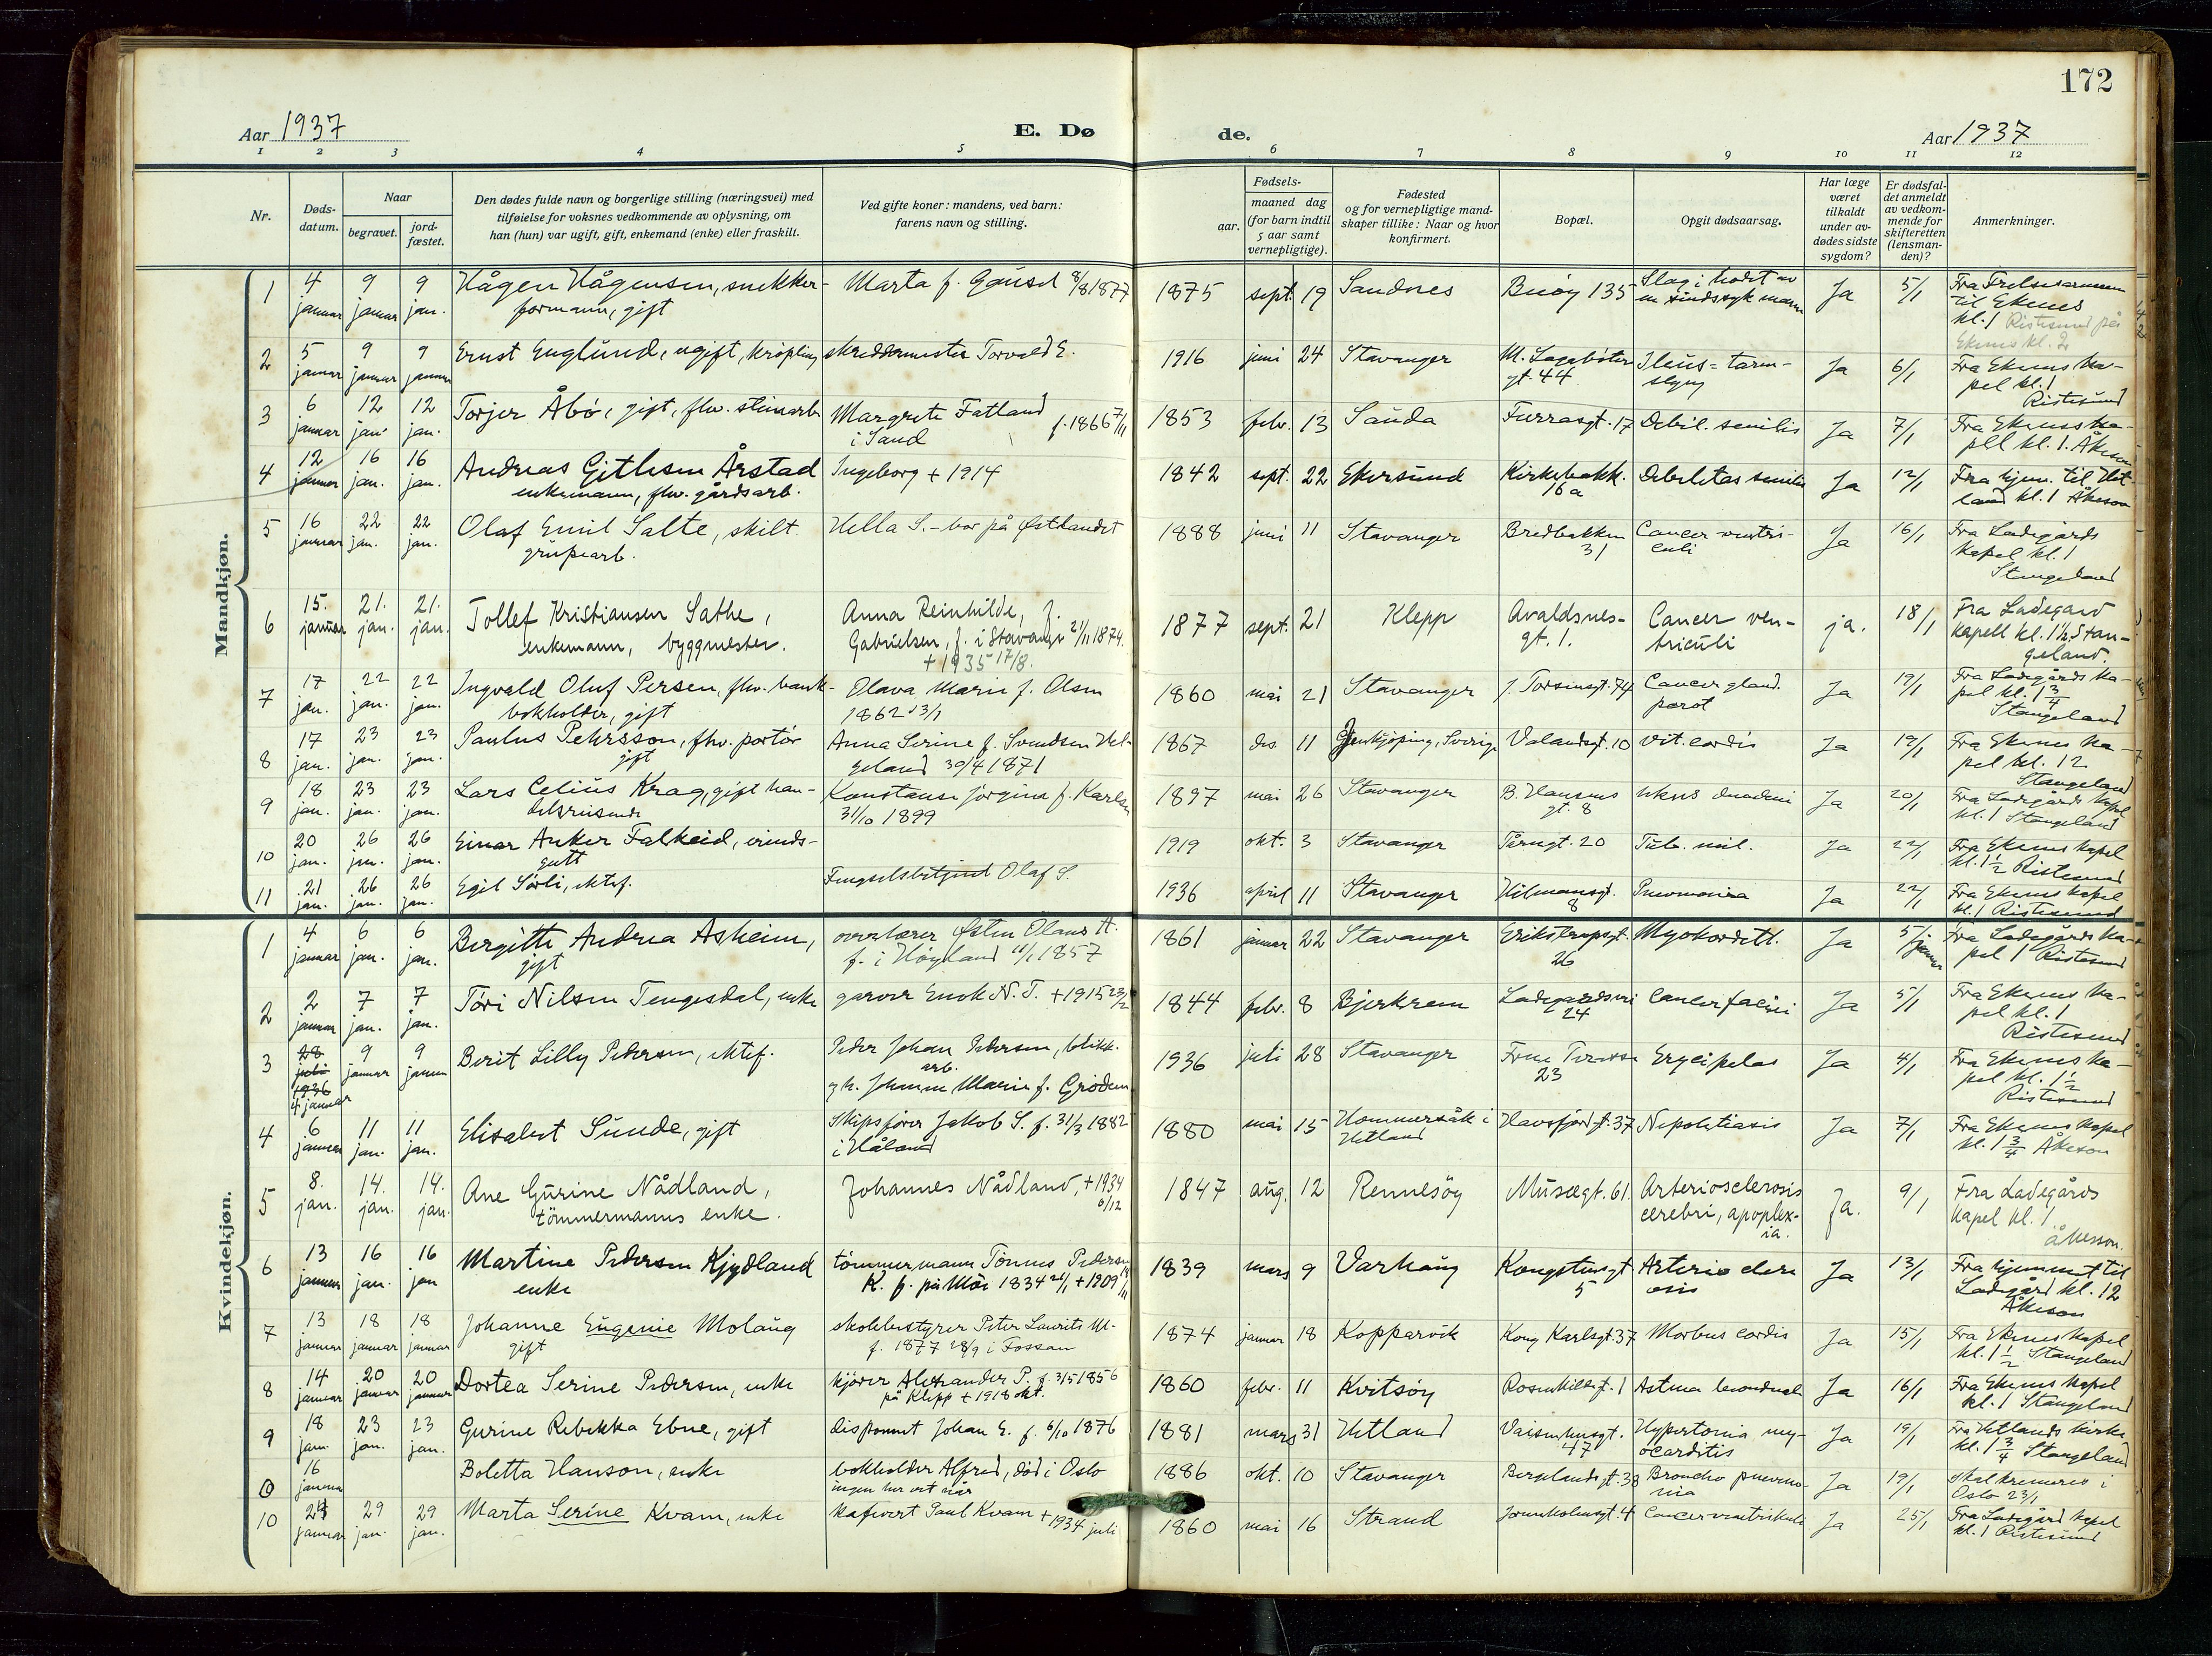 172
Aar 1937
E. Dø
de.
Aar 1937
1 2 3 4 5 6 7 8 9 10 11 12
Nr.
Døds-
datum.
Naar
begravet.
jord-
fæstet.
Den dødes fulde navn og borgerlige stilling (næringsvei) med
tilføielse for voksnes vedkommende av oplysning, om
han (hun) var ugift, gift, enkemand (enke) eller fraskilt.
Ved gifte koner: mandens, ved barn:
farens navn og stilling.
Fødsels-
aar.
maaned dag
(for barn indtil
5 aar samt
vernepligtige).
Fødested
og for vernepligtige mand-
skaper tillike: Naar og hvor
konfirmert.
Bopæl.
Opgit dødsaarsag.
Har læge
været
tilkaldt
under av-
dødes sidste
sygdom?
Er dødsfal-
det anmeldt
av vedkom-
mende for
skifteretten
(lensman-
den)?
Anmerkninger.
Mandkjøn.
1 4 januar 9 januar 9 jan. Hågen Hågensen, snekker-
formann, gift
Marta f. Gausel 8/8 1877
1875 sept. 19 Sandnes Buøy 135 Slag i hodet av
en sindssyk mann
Ja 5/1 Fra Frelsesarmeen
til Ekenes
kl. 1 Ristesund på
Ekenes kl. 2
2 5 januar 9 januar 9 januar Ernst Englund, ugift, krøpling
skreddermester Torvald E.
1916 juni 24 Stavanger M. Lagabøter
gt. 44
Ileus = tarm-
slyng
Ja 6/1 Fra Ekenes ka-
pel kl. 1
Ristesund
3 6 januar 12 jan. 12 jan. Torjer Åbø, gift, fhv. stenarb.
Margrete Fatland
i Sand f. 1866 7/11
1853 febr. 13 Sauda Furrasgt. 17 Debil. senilis Ja 7/1 Fra Ekenes ka-
pell kl. 1. Åkeson
4 12 januar 16 jan. 16 jan. Andreas Gitlesen Årstad
enkemann, fhv. gårdsarb.
Ingeborg + 1914
1842 sept. 22 Ekersund Kirkebakk.
16a
Debilitas senilis Ja 12/1 Fra hjem. til Het-
land kl. 1 Åkeson
5 16 januar 22 jan. 22 jan. Olaf Emil Salte, skilt
grubearb.
Hella S. - bor på Østlandet
1888 juni 11 Stavanger Bredbakken
31
Cancer ventri-
culi
Ja 16/1 Fra Ladegårds
kapel kl. 1
Stangeland
6 15. januar 21. jan. 21. jan. Tollef Kristiansen Sathe,
enkemann, byggmester.
Anna Reinhilde, f.
Gabrielsen, f. i Stavanger 21/11 1874.
+ 1935 17/8.
1877 sept. 21 Klepp Avaldsnes-
gt. 1.
Cancer ven-
triculi
ja. 18/1 Fra Ladegård
kapell kl. 1½. Stan-
geland.
7 17 jan. 22 jan. 22 jan. Ingvald Oluf Persen, fhv. bank-
bokholder, gift
Olava Marie f. Olsen
1862 23/1
1860 mai 21 Stavanger J. Torsensgt. 74 Cancer gland.
parot
Ja 19/1 Fra Ladegårds ka-
pel kl. 1 3/4
Stangeland
8 17 jan. 23 jan. 23 jan. Paulus Pehrsson, fhv. portør
gift
Anna Serine f. Svendsen Hel-
geland 30/4 1871
1867 des. 11 Jønkjøping, Sverige Valandsgt. 10 Vit. cordis Ja 19/1 Fra Ekenes ka-
pel kl. 12
Stangeland
9 18 jan. 23 jan. 23 jan. Lars Celius Krag, gift han-
delsreisende
Konstanse Jørgine f. Karlsen
31/10 1899
1897 mai 26 Stavanger B. Hansens
gt. 8
Ulcus duodeni Ja 20/1 Fra Ladegårds kapel
kl. 1 Stangeland
10 20 jan. 26 jan. 26 jan. Einar Anker Falkeid, erinds-
gutt
1919 okt. 3 Stavanger Tårngt. 20 Tub. mil. Ja 22/1 Fra Ekenes kapel
kl. 1 ½ Ristesund
11 21 jan. 26 jan. 26 jan. Egil Sørli, ektef.
Fengselsbetjent Olaf S.
1936 april 11 Stavanger Hilmansgt.
8
Pneumonia Ja 22/1 Fra Ekenes kapel
kl. 1 Ristesund
Kvindekjøn.
1 4 januar 6 jan. 6 jan. Birgitte Andrea Asheim,
gift
overlærer Østen Olaus A.
f. i Høyland 11/1 1857
1861 januar 22 Stavanger Erikstrupsgt.
26
Myokorditt. Ja 5/januar Fra Ladegårds ka-
pel 1 Ristesund
2 2 januar 7 jan. 7 jan. Tøri Nilsen Tengesdal, enke
garver Enok N. T. + 1915 23/2
1844 febr. 8 Bjerkreim Ladegaardsvei
24
Cancer faciei Ja 5/1 Fra Ekenes ka-
pel kl. 1
Ristesund
3 28 juli 1936 4 januar 9 januar 9 januar Berit Lilly Pedersen, ektef.
Peder Johan Pedersen, blikk.
arb.
g.h. Johanne Marie f. Grødem
1936 juli 28 Stavanger Frue Terrasse
23
Erycipelas Ja 4/1 Fra Ekenes ka-
pel kl. 1 ½
Ristesund
4 6 januar 11 jan. 11 jan. Elisabet Sunde, gift
Skipsfører Jakob S. f. 31/3 1882
i Håland
1880 mai 15 Hommersåk i
Hetland
Havsfjord gt. 37 Nepolitiasis Ja 7/1 Fra Ekenes kapel
kl. 1 3/4 Åkeson
5 8. jan. 14. jan. 14. jan. Ane Gurine Nådland,
tömmermanns enke.
Johannes Nådland, + 1934
6/12
1847 aug. 12 Rennesöy Musegt. 61. Arteriosclerosis
cerebri, apoplex-
ia.
Ja. 9/1 Fra Ladegårds
kapel kl. 1
åkesson.
6 13 januar 16 jan. 16 jan Martine Pedersen Kjydland
enke
tömmermann Tönnes Pedersen
K. f. på Moi 1834 21/1 + 1909
1839 mars 9 Varhaug Kongstensgt
5
Arterio sclero
osis
Ja 13/1 Fra hjemmet til
Ladegård kl. 12
Åkeson
7 13 januar 18 januar 18 januar Johanne Eugenie Molaug
gift
skolebestyrer Peter Laurits M.
f. 1877 28/9 i Fossan
1874 januar 18 Kopparvik Kong Karlsgt. 37 Morbus cordis Ja 15/1 Fra Ekenes kapel
kl. 1 ½ Stangeland
8 14 januar 20 januar 20 januar Dortea Serine Pedersen, enke
kjører Alexander P. f. 3/5 1856
på Klepp + 1918 okt.
1860 febr. 11 Kvitsøy Rosenkildegt. 1 Astma bronchiale Ja 16/1 Fra Ekenes kapel
kl. 1 Stangeland
9 18 jan. 23 jan. 23 jan. Gurine Rebekka Ebne, gift
disponent Johan E. f. 6/10 1876
1881 mars 31 Hetland Vaisenhusgt.
47
Hypertonia my-
ocarditis
Ja 19/1 Fra Hetlands kirke
kl. 1 3/4 Stangeland
0 16 januar Boletta Hanson, enke
bokholder Alfred, død i Oslo
ingen her vet når
1886 okt. 10 Stavanger Bergelandsgt. 38 Broncho pneumo-
nia
Ja 19/1 Skal kremeres i
Oslo 23/1
10 24 januar 29 jan. 29 jan. Marta Serine Kvam, enke
kafevert Paul Kvam + 1934 juli
1860 mai 16 Strand Jorenholmsgt. 4 Cancer ventrikuli Ja 25/1 Fra Ladegård kapel
kl. 1 Ristesund